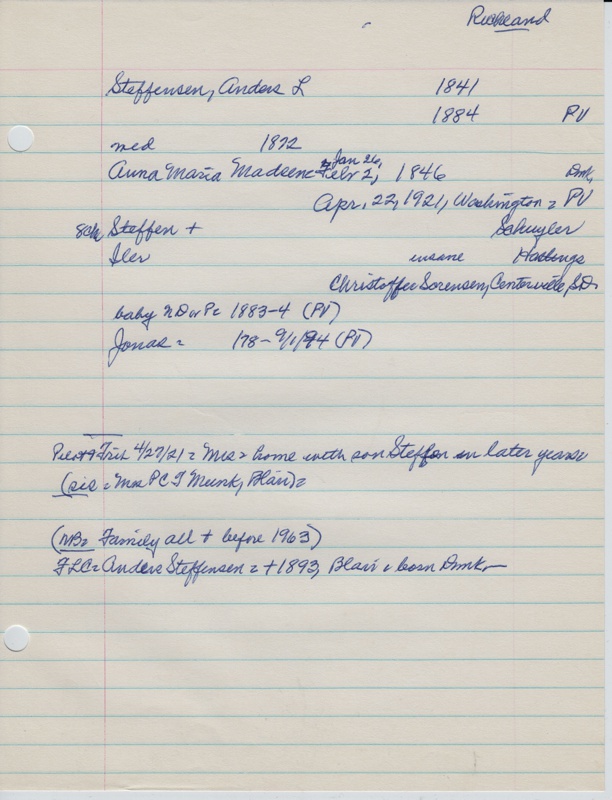 Richland
Steffensen, Anders L 1841
1884 PV
med 1872
Anna Maria Madsen = Jan 26, Feb 2, 1846 Dmk,
Apr. 22, 1921, Washington = PV
8ch Steffen + Schuyler
Iler insane Hastings
Christoffer Sorensen, Centerville, S.D.
baby ND or Pc 1883-4 (PV)
Jonas = 178 - 9/1/94 (PV)
Pilot + Trib 4/27/21 = Mrs = home with son Steffen in later years
(sis = Mrs P C J Munk, Blair) =
(NB = Family all + before 1963)
FLC = Anders Steffensen = + 1893, Blair = born Dmk